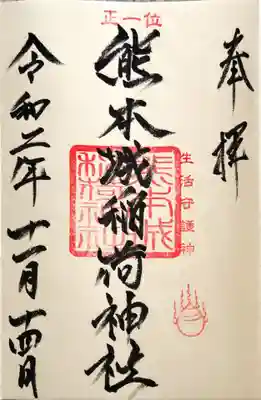 奉拝
生活守護神
正一位
熊本城稲荷神社
令和二年十一月十四日